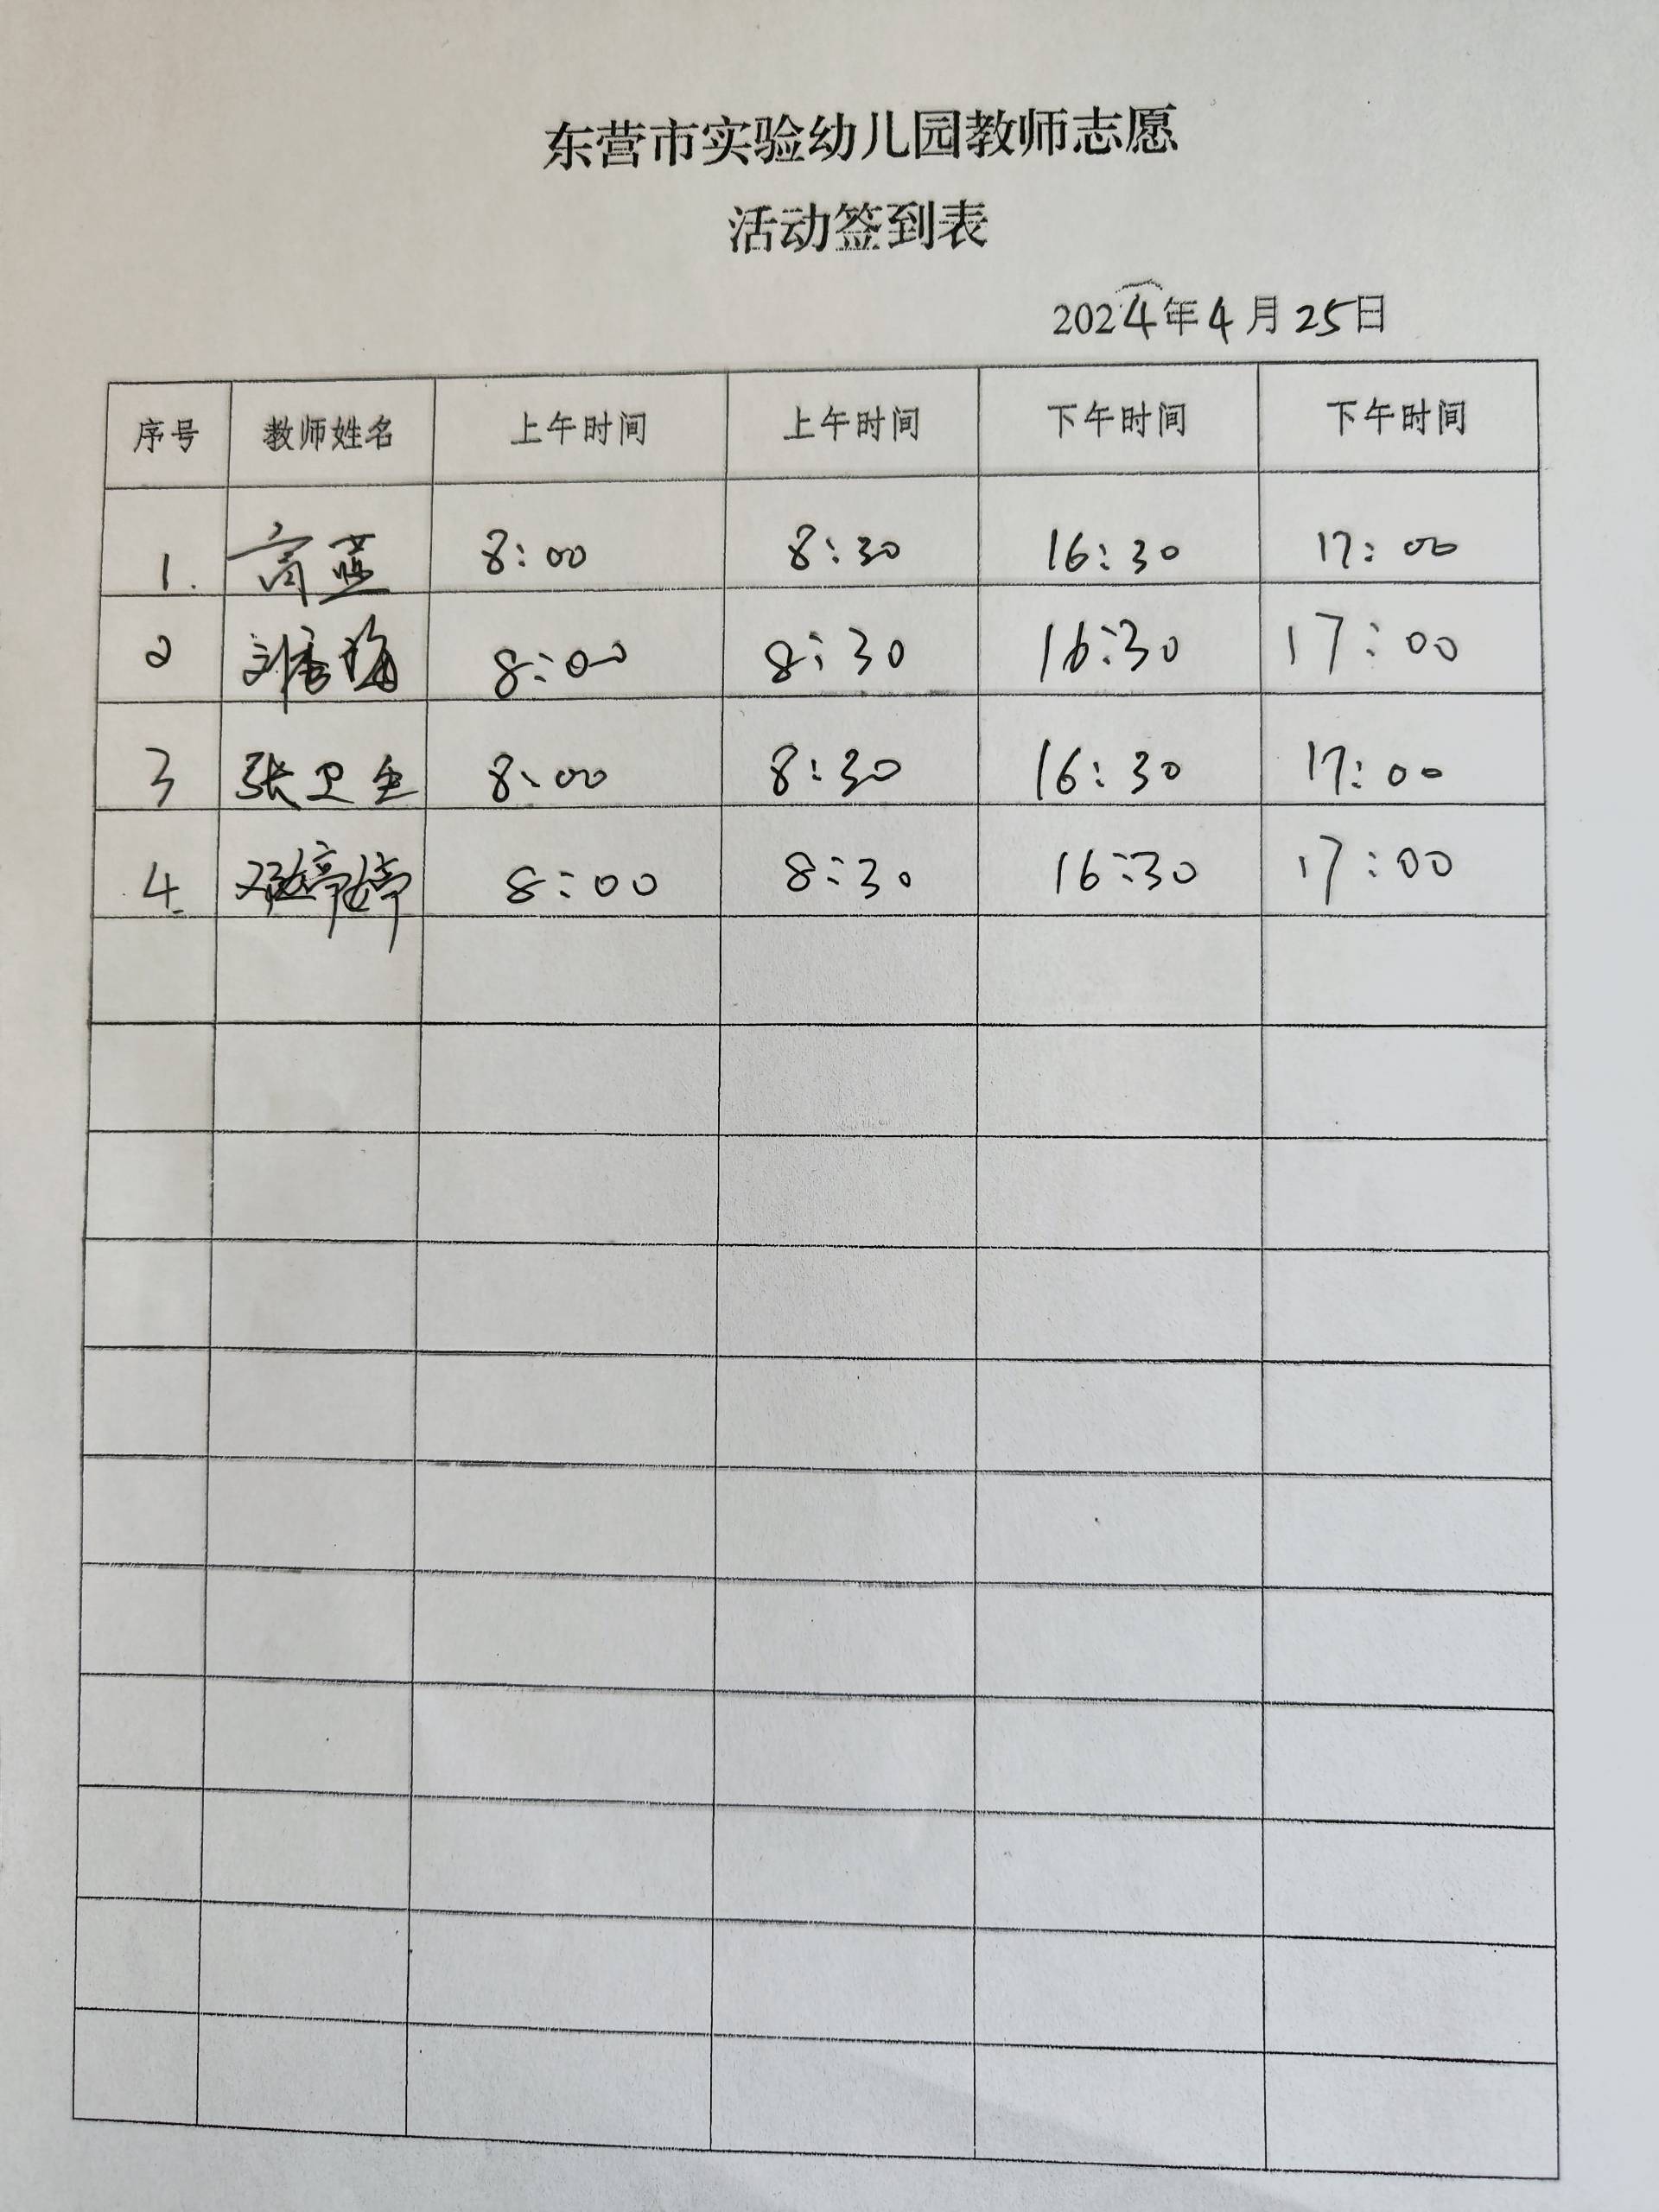 东营市实验幼儿园教师志愿
活动签到表
2024年4月25日
序号 教师姓名 上午时间 上午时间 下午时间 下午时间
1. 高蓝 8:00 8:30 16:30 17:00
2 刘秀梅 8:00 8:30 16:30 17:00
3 张卫全 8:00 8:30 16:30 17:00
4 邓婷婷 8:00 8:30 16:30 17:00